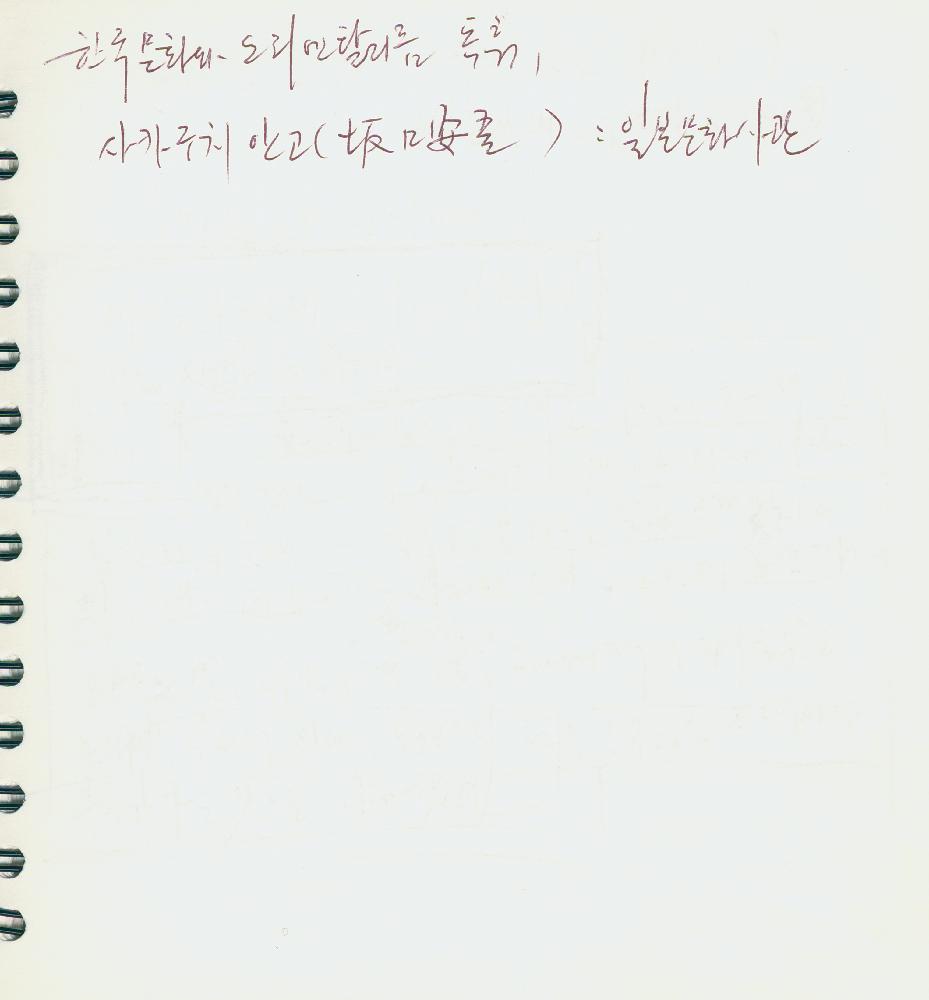 한국문화와 오리엔탈리즘 특휘,
사카구치 안고(坂口安吾 ) : 일본문화사관